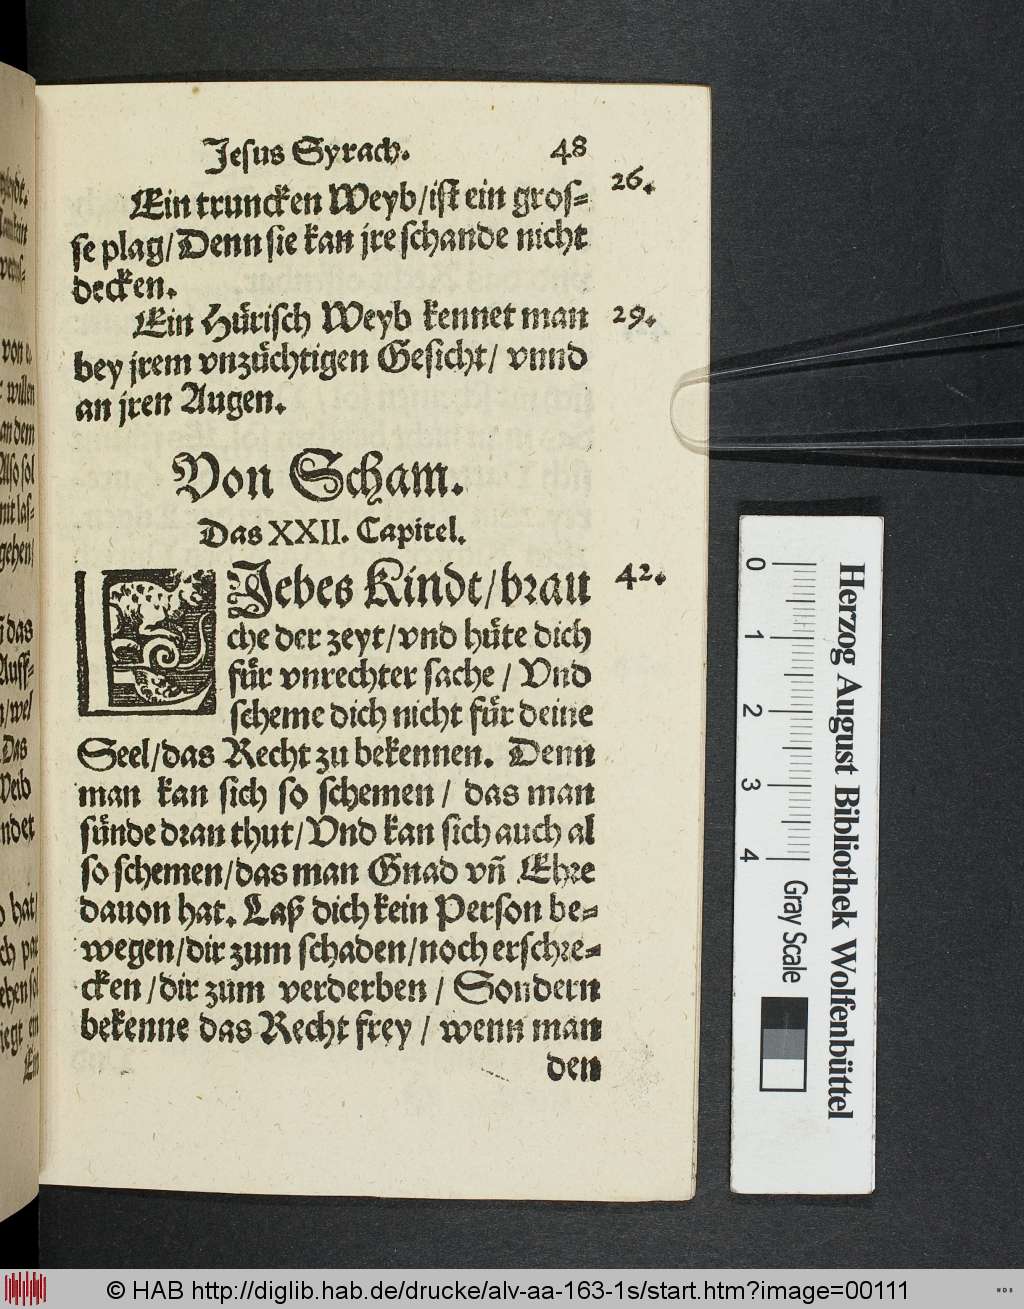 Jesus Syrach. 48
Ein truncken Weyb/ist ein gros⸗ 26.
se plag/Denn sie kan jre schande nicht
decken.
Ein Hůrisch Weyb kennet man 29.
bey jrem vnzůchtigen Gesicht/ vnnd
an jren Augen.
Von Scham.
Das XXII. Capitel.
LJebes Kindt/brau 42.
che der zeyt/vnd hůte dich
fůr vnrechter sache / Vnd
scheme dich nicht fůr deine
Seel/das Recht zu bekennen. Denn
man kan sich so schemen / das man
sůnde dran thut/Vnd kan sich auch al
so schemen/das man Gnad vñ Ehre
dauon hat. Laß dich kein Person be⸗
wegen/dir zum schaden/noch erschre⸗
cken /dir zum verderben / Sondern
bekenne das Recht frey / wenn man
den
von
willen
an dem
Also sol
gehen/
das
Auff⸗
/wel
Das
Weib
ndet
hat/
Ein
0 1 2 3 4
Gray Scale
Herzog August Bibliothek Wolfenbüttel
© HAB http://diglib.hab.de/drucke/alv-aa-163-1s/start.htm?image=00111